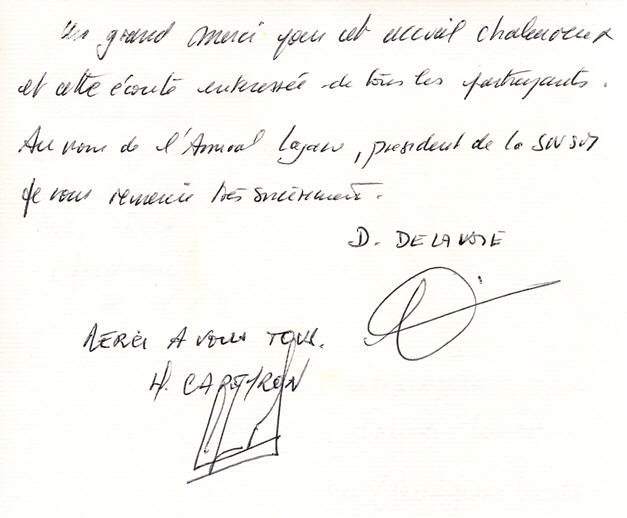 Un grand merci pour cet accueil chaleureux
et cette écoute intéressée de tous les participants.
Au nom de l'Amiral Lagane, président de la SNSM
je vous remercie très sincèrement.
D. DELAVOIE
MERCI A VOUS TOUS.